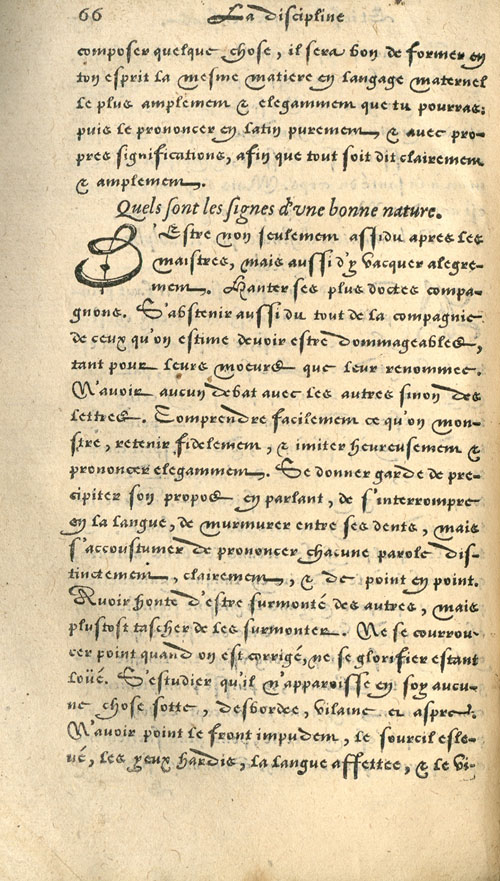 66 La discipline
composer quelque chose, il sera bon de former en
ton esprit la mesme matiere en langage maternel
le plus amplement & elegamment que tu pourras:
puis le prononcer en latin purement & avec pro-
pres significations, afin que tout soit dit clairement
& amplement.
Quels sont les signes d'vne bonne nature.
D'Estre non seulement assidu apres les
maistres, mais aussi d'y vacquer alegre-
ment. Hanter ses plus doctes compa-
gnons. S'abstenir aussi du tout de la compagnie
de ceux qu'on estime devoir estre dommageables,
tant pour leurs moeurs que leur renommee.
N'avoir aucun debat avec les autres sinon des
lettres. Comprendre facilement ce qu'on mon-
stre, retenir fidelement, & imiter heureusement &
prononcer elegamment. Se donner garde de pre-
cipiter son propos en parlant, de s'interrompre
en la langue, de murmurer entre ses dents, mais
s'accoustumer de prononcer chacune parole dis-
tinctement, clairement, & de point en point.
Avoir honte d'estre surmonté des autres, mais
plustost tascher de les surmonter. Ne se courrou-
cer point quand on est corrigé, ne se glorifier estant
loüé. S'estudier qu'il n'apparoisse en soy aucu-
ne chose sotte, desbordee, vilaine et aspre.
N'avoir point le front impudent, le sourcil esle-
vé, les yeux hardis, la langue affettee, & le vi-